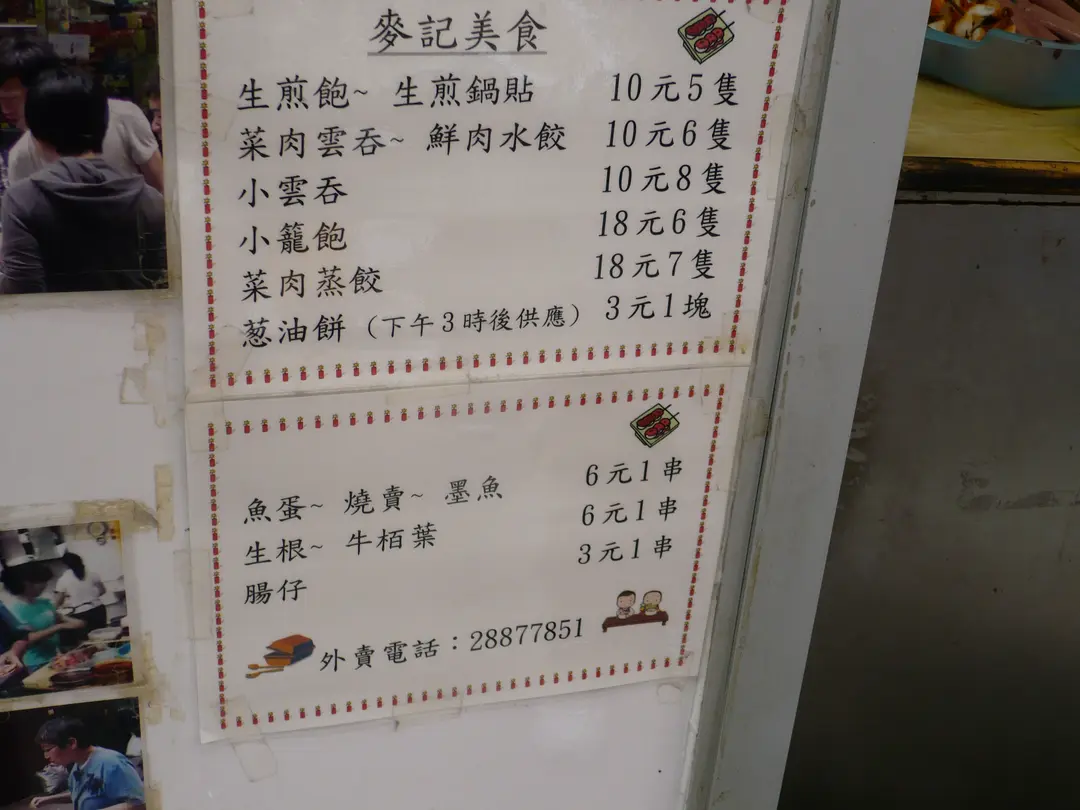 麥記美食
生煎飽~ 生煎鍋貼 10元5隻
菜肉雲吞~ 鮮肉水餃 10元6隻
小雲吞 10元8隻
小籠飽 18元6隻
菜肉蒸餃 18元7隻
葱油餅（下午3時後供應） 3元1塊
魚蛋~ 燒賣~ 墨魚 6元1串
生根~ 牛栢葉 6元1串
腸仔 3元1串
外賣電話：28877851